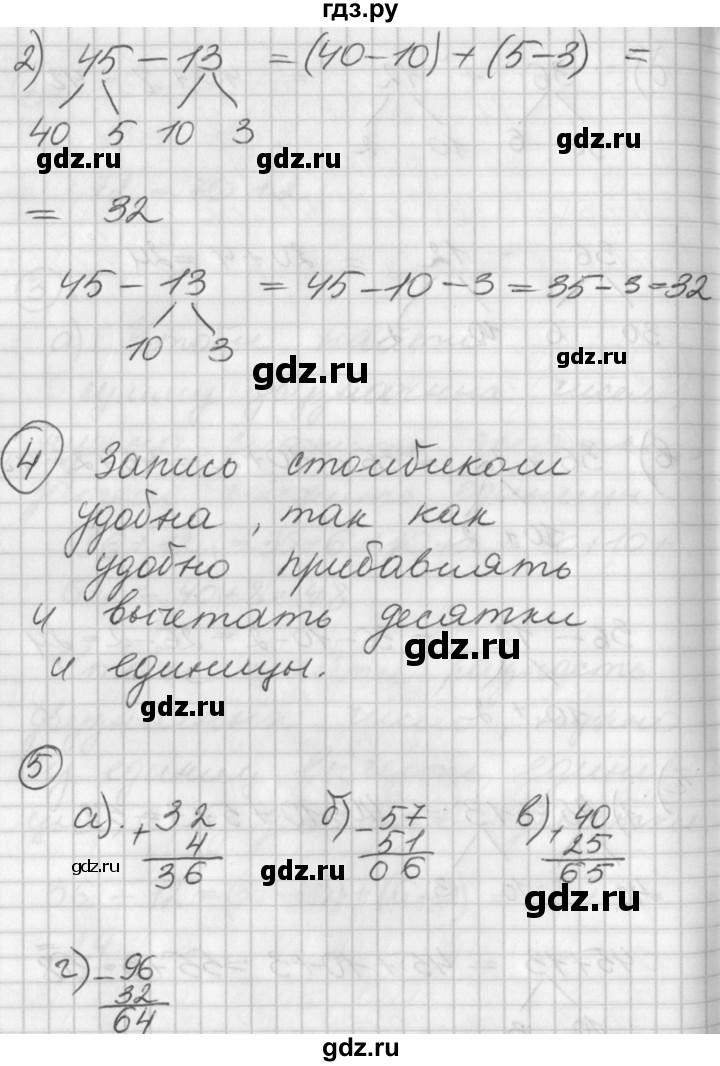 гдз.ру
2) 45 − 13 = (40−10) + (5−3) =
40 5 10 3
gdz.ru gdz.ru gdz.ru
= 32
45 − 13 = 45 − 10 − 3 = 35 − 3 = 32
10 3
gdz.ru gdz.ru
4 Запись столбиком
удобна, так как
удобно прибавлять
и вычетать десятки
gdz.ru
и единицы.
gdz.ru
5
а) + 32 б) − 57 в) + 40
4 51 25
36 06 65
gdz.ru gdz.ru gdz.ru
г) − 96
32
64
gdz.ru